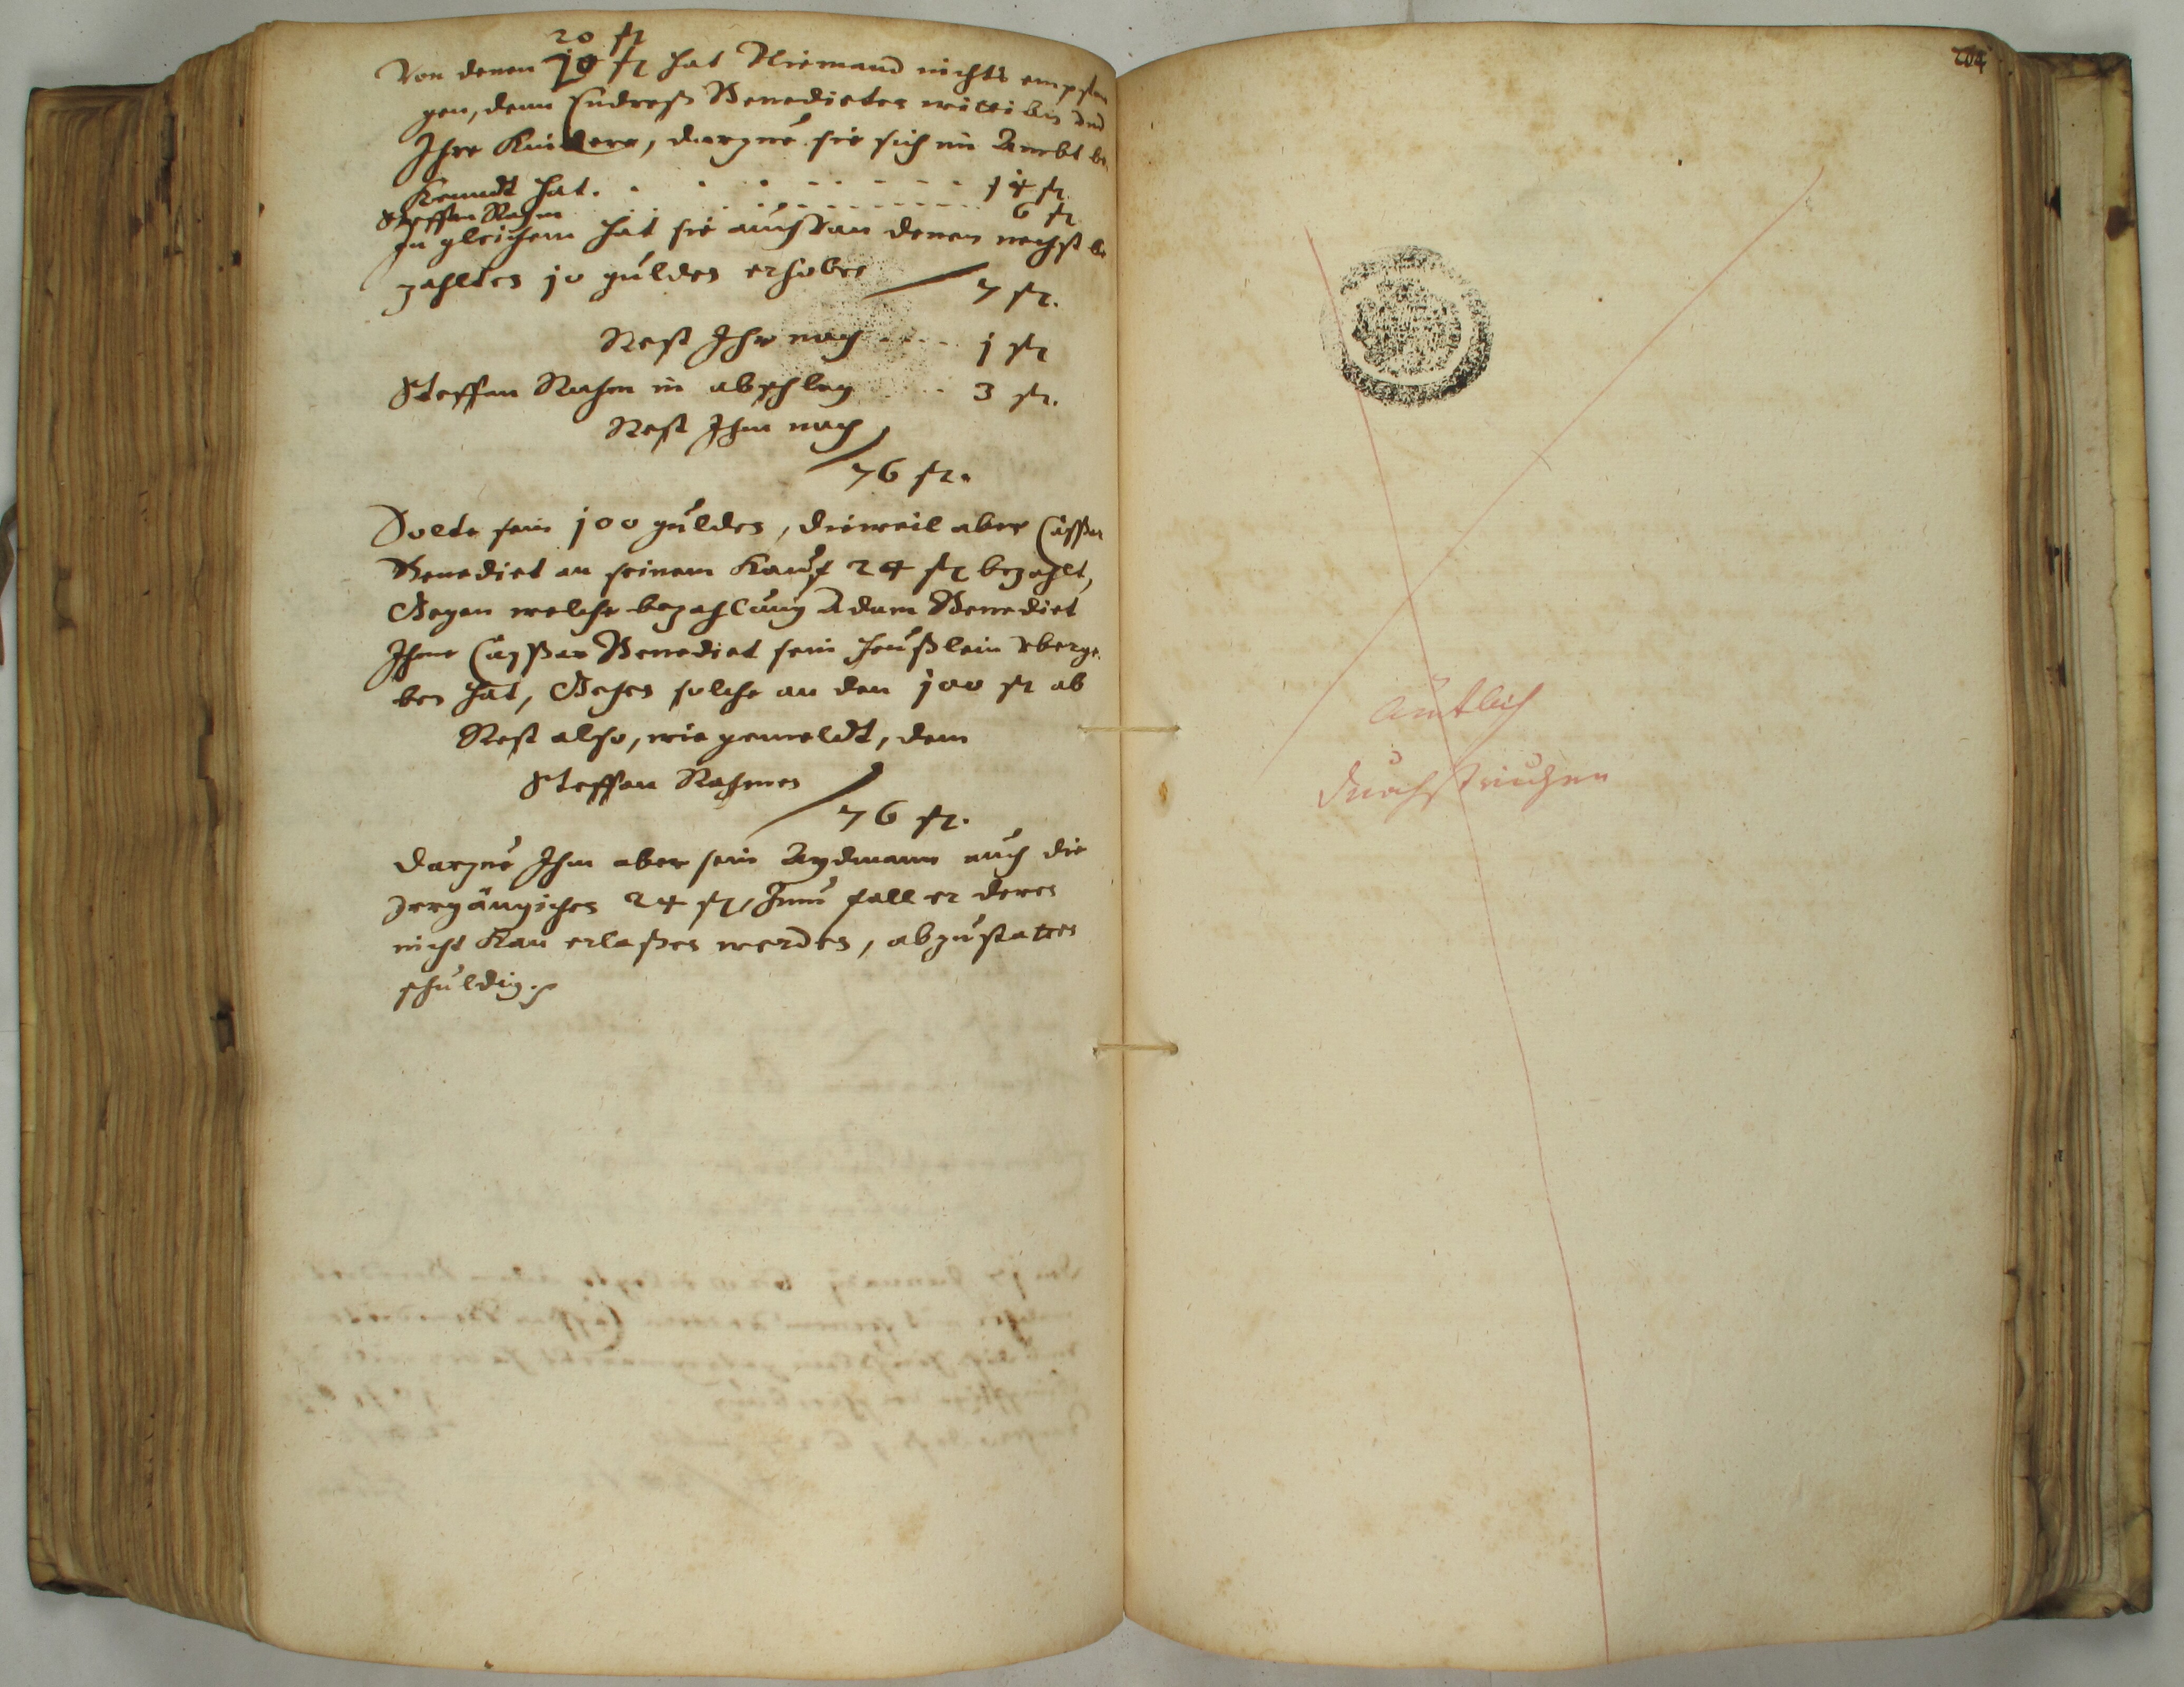 20 fl
Von denen 10 fl hat Niemand nichts empfan
gen, denn Endreß Benedicten wittibin vnd
Ihre Kindere, darzue sie sich im Ambt be
kenndt hat. . . . . . . . . 14 fl
Steffan Rahm . . . . . . . . 6 fl
In gleichem hat sie auß von denen nechst be
zahlten 10 gulden erhoben 7 fl.
Rest Ihr noch . . . . 1 fl
Steffan Rahm in abschlag . . . 3 fl.
Rest Ihm noch
76 fl.
Solte sein 100 gulden, dieweil aber Casspar
Benedict an seinem Kauf 24 fl bezahlt,
Gegen welche bezahlung Adam Benedict
Ihme Casspar Benedict sein heußlein vberge
ben hat, Gehen solche an den 100 fl ab
Rest also, wie gemeldt, dem
Steffan Rahmen
76 fl.
darzue Ihm aber sein Aydmann auch die
24 fl, Inn fall er deren
nicht kan erlaßen werden, abzustatten
schuldig.
204
Amtlich
durchstrichen